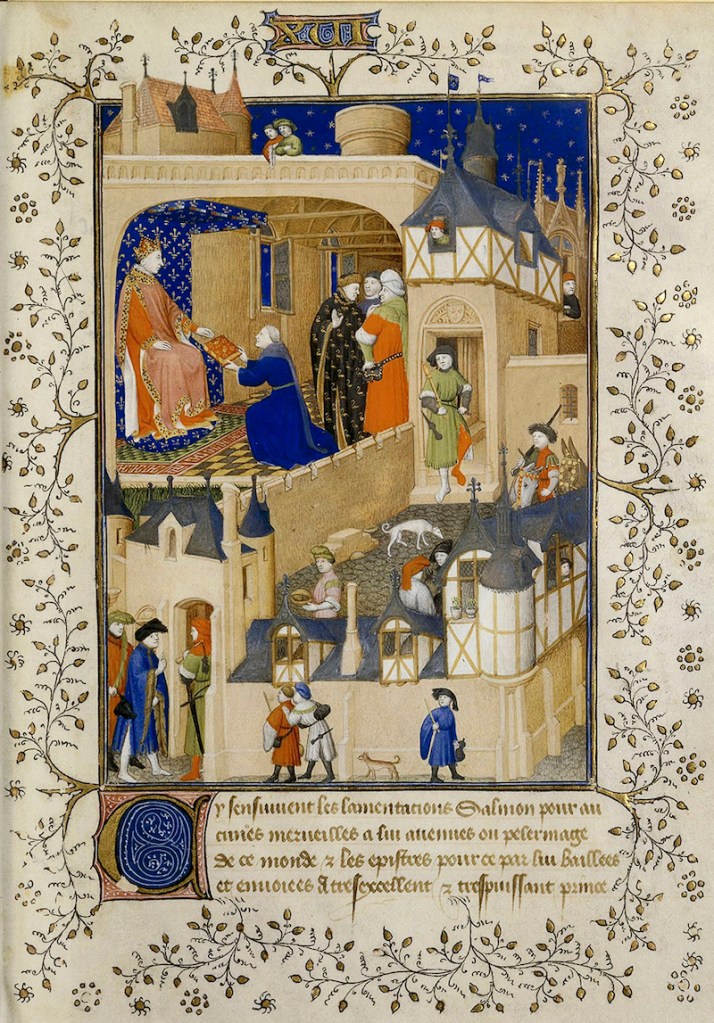 XII
Cy sensuiuent les lamentacions Salmon pour au
cunes merueilles a lui auenues ou pelermage
de ce monde & les epistres pour ce par lui Baillees
et enuoiees A tresexcellent & trespuissant prince